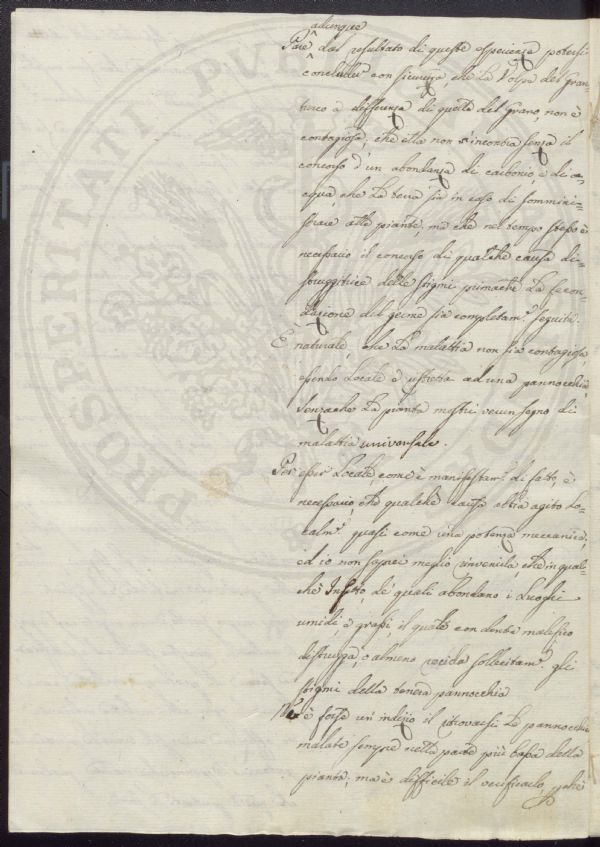 adunque
Pare dal resultato di queste esperienze potersi
concluder con sicurezza, che la Volpe del Gran-
turco a differenza di quella del Grano, non è
contagiosa, che ella non s'incontra senza il
concorso d'un abondanza di carbonio e di ac-
qua, che la terra sia in caso di sommini-
strare alle piante; ma che nel tempo stesso è
necessario il concorso di qualche causa di-
struggitrice delle stigmi primachè la fecon-
dazione del germe sia completam.e seguita.
È naturale, che la malattia non sia contagiosa
essendo locale e ristretta ad una pannocchia,
senzachè la pianta mostri verun segno di
malattia universale.
Per esser locale, come è manifestam.e di fatto, è
necessario, che qualche causa abbia agito lo-
calm.e quasi come una potenza meccanica;
ed io non saprei meglio rinvenirla, che in qual-
che Insetto, de' quali abondano i luoghi
umidi, e grassi, il quale con dente malefico
distrugga, o almeno recida sollecitam.e gli
stigmi della tenera pannocchia
Ne è forse un indizio il ritrovarsi le pannocchie
malate sempre nella parte più bassa della
pianta; ma è difficile il verificarlo, poichè
PROSPERITATI PUBLICAE